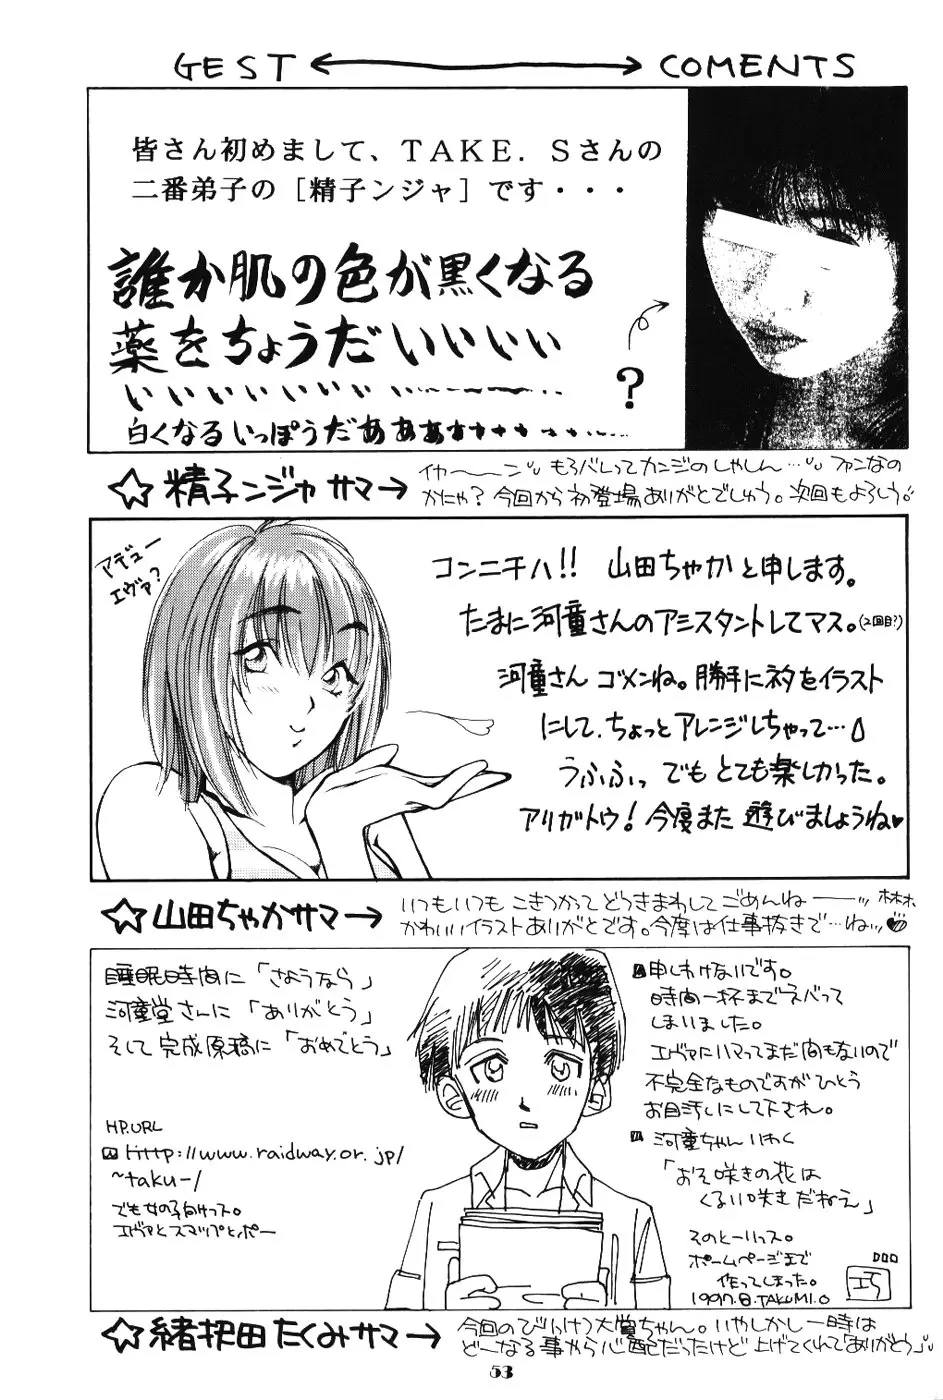 GEST ←→ COMENTS
皆さん初めまして、TAKE．Sさんの
二番弟子の［精子ンジャ］です・・・
誰か肌の色が黒くなる
薬をちょうだいいいいい
いいいいいいい
白くなるいっぽうだあああ
?
☆精子ンジャサマ→
イヤ〜〜ン もろバレってカンジのしゃしん… ファンなの
かにゃ？今回から初登場ありがとでしゅう。次回もよろしう!
アデュー
エヴァ？
コンニチハ!! 山田ちゃかと申します。
たまに河童さんのアシスタントしてマス。(2回目?)
河童さん ゴメンね。勝手にネタをイラスト
にして、ちょっとアレンジしちゃって…
うふふっ でもとても楽しかった。
アリガトウ！今度また遊びましょうね♥
☆山田ちゃかサマ→
いつもいつもこきつかってどうきまわしてごめんねーーッ
かわいいイラストありがとです。今度は仕事抜きで…ねッ
睡眠時間に「さようなら」
河童堂さんに「ありがとう」
そして完成原稿に「おめでとう」
HP.URL
Http://www.raidway.or.jp/
~taku-/
でも女の子向けっス。
エヴァとスマップとポー
申しわけないです。
時間一杯までネバって
しまいました。
エヴァにハマってまだ間もないので
不完全なものですがひとう
お目汚しにして下され。
河童ちゃんいわく
「おそ咲きの花は
くるい咲きだねえ」
そのとーりっス。
ホームページまで
作ってしまった。
1997.8.TAKUMI.O
☆緒把田たくみサマ→
今回のびっけつ大賞ちゃん。いやしかし一時は
どーなる事やら心配だったけど上げてくれて「ありがとう」
53